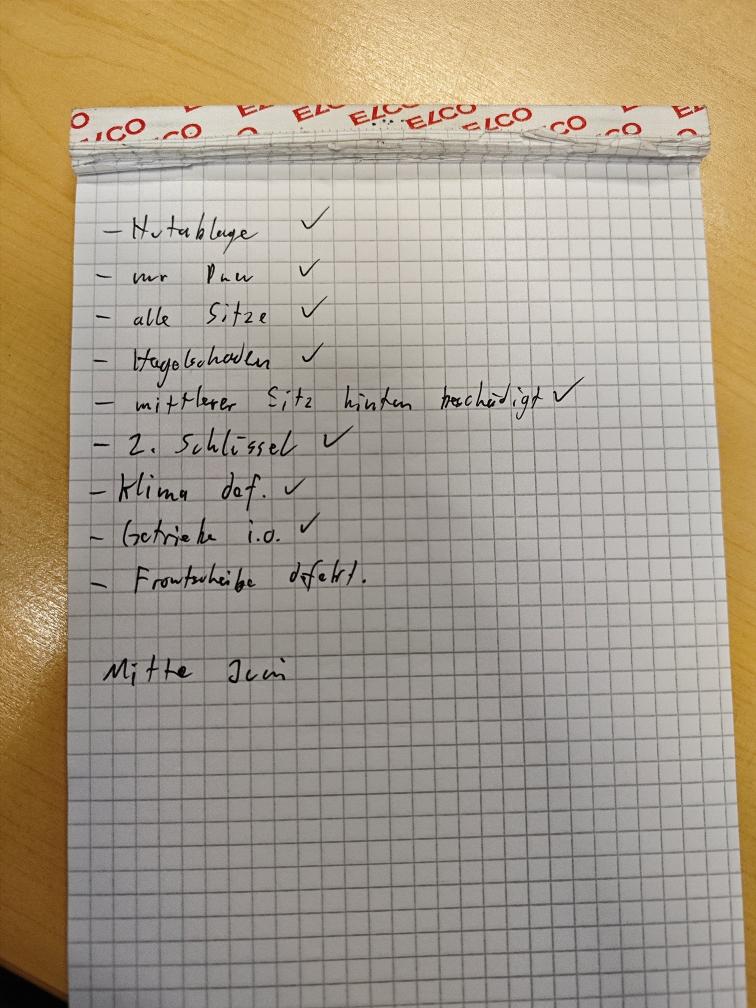 ELCO ELCO ELCO ELCO ELCO
- Hutablage ✓
- nur ✓
- alle Sitze ✓
- Hagelschaden ✓
- mittlerer Sitz hinten beschädigt ✓
- 2. Schlüssel ✓
- Klima def. ✓
- Getriebe i.o. ✓
- Frontscheibe defekt.
Mitte Juni